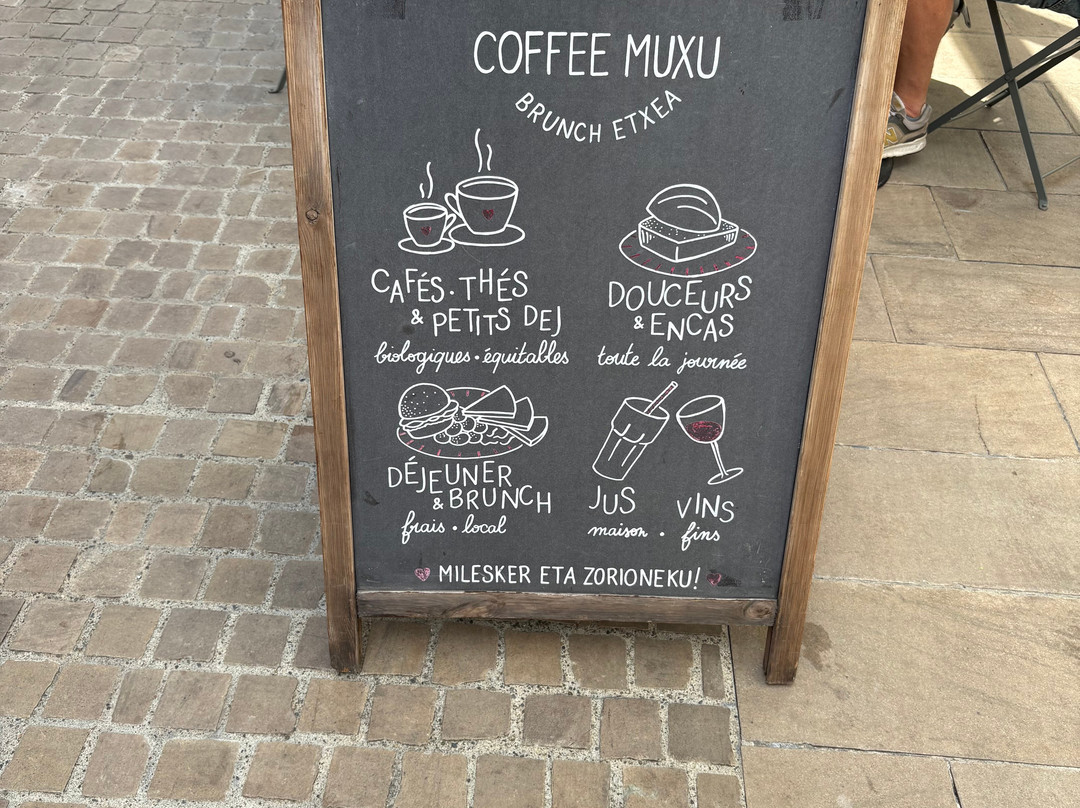 COFFEE MUXU
BRUNCH ETXEA
CAFÉS · THÉS
& PETITS DEJ
biologiques · équitables
DOUCEURS
& ENCAS
toute la journée
DÉJEUNER
& BRUNCH
frais · local
JUS VINS
maison · fins
MILESKER ETA ZORIONEKU!